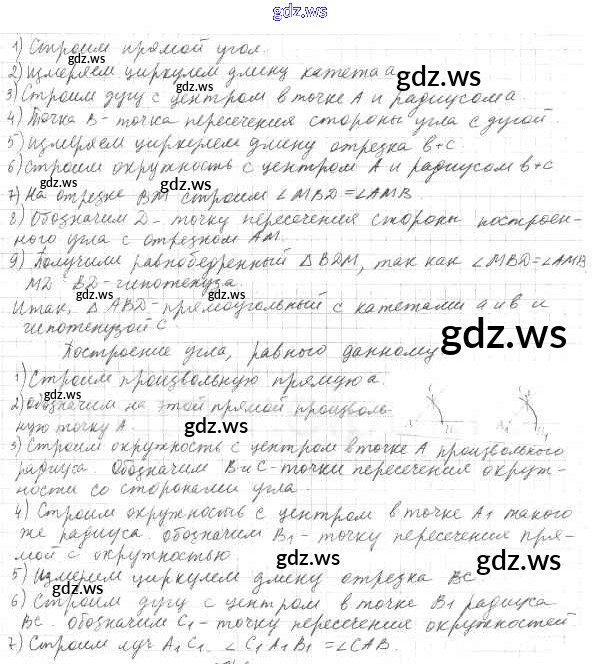 gdz.ws
1) Строим прямой угол.
2) Измеряем циркулем длину катета а.
gdz.ws
3) Строим дугу с центром в точке А и радиусом а.
4) Точка В - точка пересечения стороны угла с дугой.
5) Измеряем циркулем длину отрезка в+с.
6) Строим окружность с центром А и радиусом в+с
7) На отрезке ВМ строим ∠MBD = ∠AMB.
8) Обозначим D - точку пересечения стороны построен-
ного угла с отрезком АМ.
9) Получили равнобедренный △BDM, так как ∠MBD = ∠AMB
MD = BD - гипотенуза
Итак, △ABD - прямоугольный с катетами а и в и
гипотенузой с.
gdz.ws
Построение угла, равного данному
1) Строим произвольную прямую а.
2) Обозначим на этой прямой произволь-
ную точку А.
gdz.ws
3) Строим окружность с центром в точке А произвольного
радиуса. Обозначим В и С - точки пересечения окруж-
ности со сторонами угла.
4) Строим окружность с центром в точке А1 такого
же радиуса. Обозначим В1 - точку пересечения пря-
мой с окружностью.
gdz.ws
5) Измерим циркулем длину отрезка ВС
6) Строим дугу с центром в точке В1 радиуса
ВС. Обозначим С1 - точку пересечения окружностей.
7) Строим луч А1С1. ∠C1A1B1 = ∠CAB.
gdz.ws